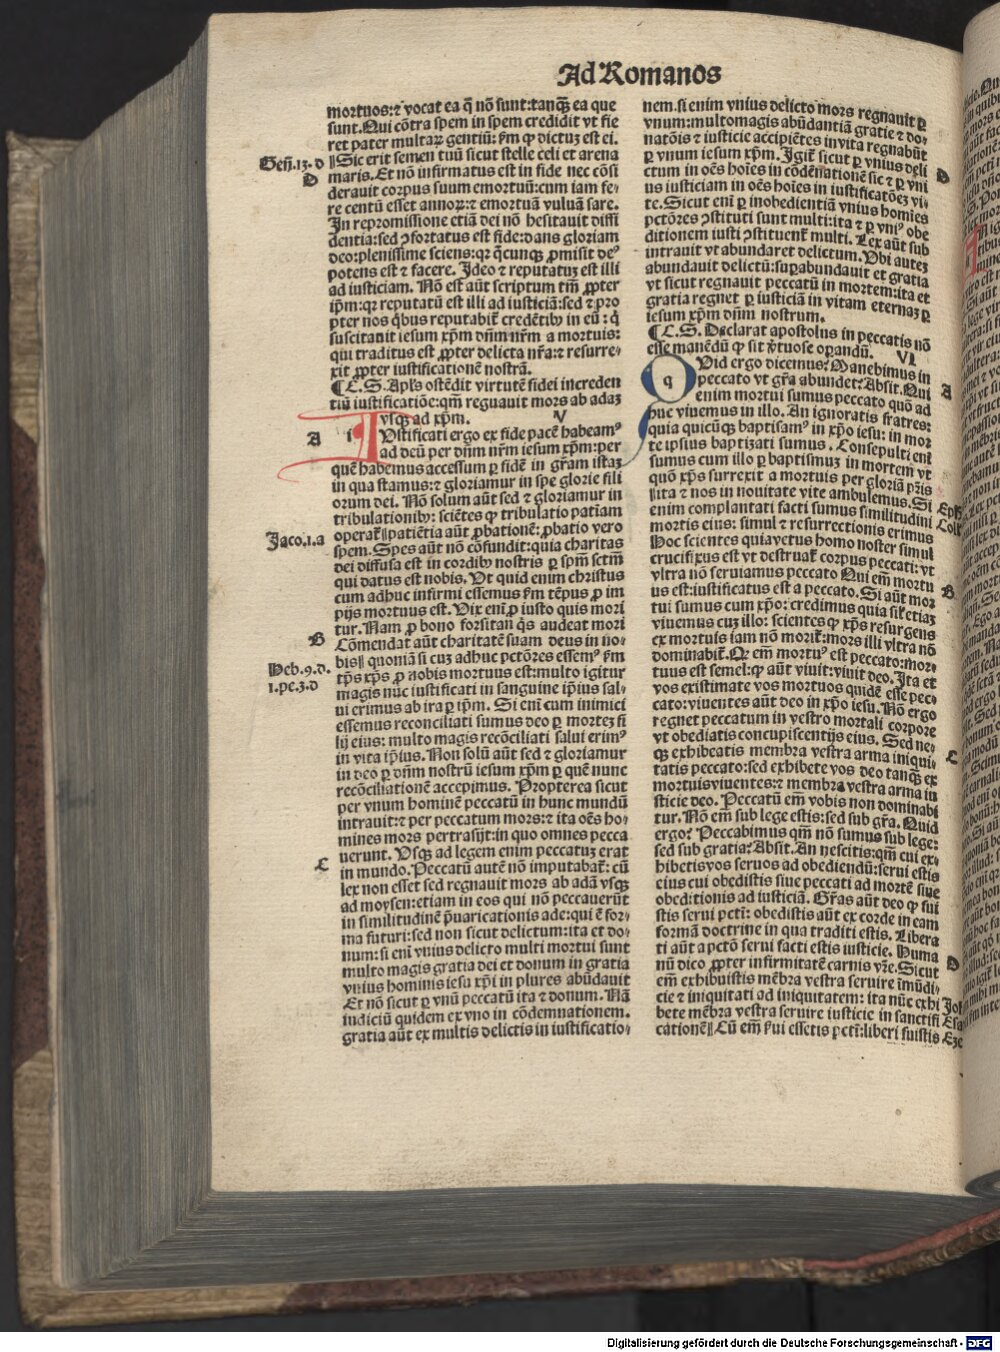 Ad Romanos
mortuos:⁊ vocat ea q̄ nō sunt:tanq̄ꝫ ea que
sunt.Qui cōtra spem in spem credidit vt fie
ret pater multaꝝ gentiū: ẜm ꝙ dictuꝫ est ei.
Geñ.15.d
‖Sic erit semen tuū sicut stelle celi et arena
D
maris.Et nō infirmatus est in fide nec cōsi
derauit corpus suum emortuū:cum iam fe⸗
re centū esset annoꝝ:⁊ emortuā vuluā sare.
In repromissione etiā dei nō hesitauit diffi
dentia:sed ↄfortatus est fide:dans gloriam
deo:plenissime sciens:qꝛ q̄cunqꝫ ꝓmisit deꝰ
potens est ⁊ facere. Ideo ⁊ reputatuꝫ est illi
ad iusticiam. Nō est aūt scriptum tm̄ ꝓpter
ip̄m:qꝛ reputatū est illi ad iusticiā:sed ⁊ pro
pter nos q̇bus reputabit̄ credētibꝰ in eū : q̇
suscitauit iesum xp̄m dn̄m nr̄m a mortuis:
qui traditus est ꝓpter delicta nr̄a:⁊ resurre⸗
xit ꝓpter iustificationē nostrā.
¶ C. S. Apl̓s ostēdit virtutē fidei increden
tiū iustificatiōe:qm̄ regnauit mors ab adaꝫ
vsqꝫ ad xp̄m. V
A
i
IVstificati ergo ex fide pacē habeamꝰ
ad deū per dn̄m nr̄m iesum xp̄m:per
quē habemus accessum ꝑ fidē in gr̄am istaꝫ
in qua stamus:⁊ gloriamur in spe glorie fili
orum dei. Nō solum aūt sed ⁊ gloriamur in
tribulationibꝰ: sciētes ꝙ tribulatio patīam
Jaco.1.a
operat̄‖patiētia aūt ꝓbationē: ꝓbatio vero
spem.Spes aūt nō cōfundit:quia charitas
dei diffusa est in cordibꝰ nostris ꝑ spm̄ sctm̄
qui datus est nobis. Vt quid enim christus
cum adhuc infirmi essemus ẜm tēpus ꝓ im
pijs mortuus est. Vix enī ꝓ iusto quis mori
tur. Nam ꝓ bono forsitan q̇s audeat mori
B
Cōmendat aūt charitatē suam deus in no⸗
Heb.9.d.
bis‖ quoniā si cuꝫ adhuc pctōres essemꝰ ẜm
1.pe.3.d
tp̄s xp̄s ꝓ nobis mortuus est:multo igitur
magis nūc iustificati in sanguine ip̄ius sal⸗
ui erimus ab ira ꝑ ip̄m. Si enī cum inimici
essemus reconciliati sumus deo ꝑ morteꝫ fi
lij eius: multo magis recōciliati salui erimꝰ
in vita ip̄ius. Non solū aūt sed ⁊ gloriamur
in deo ꝑ dn̄m nostrū iesum xp̄m ꝑ quē nunc
recōciliationē accepimus. Propterea sicut
per vnum hominē peccatū in hunc mundū
intrauit:⁊ per peccatum mors:⁊ ita oēs ho⸗
mines mors pertrasijt:in quo omnes pecca
uerunt. Vsqꝫ ad legem enim peccatuꝫ erat
C
in mundo.Peccatū autē nō imputabat̄: cū
lex non esset sed regnauit mors ab adā vsqꝫ
ad moysen:etiam in eos qui nō peccauerūt
in similitudinē p̄uaricationis ade:qui ē for⸗
ma futuri:sed non sicut delictum:ita et do⸗
num:si enī vnius delicto multi mortui sunt
multo magis gratia dei et donum in gratia
vnius hominis iesu xp̄i in plures abūdauit
Et nō sicut ꝑ vnū peccatū ita ⁊ donum. Nā
iudiciū quidem ex vno in cōdemnationem.
gratia aūt ex multis delictis in iustificatio⸗
nem.si enim vnius delicto mors regnauit ꝑ
vnum:multomagis abūdantiā gratie ⁊ do⸗
natōis ⁊ iusticie accipiētes in vita regnabūt
ꝑ vnum iesum xp̄m. Igit̄ sicut ꝑ vnius deli
D
ctum in oēs hoīes in cōdēnationē sic ⁊ ꝑ vni
us iusticiam in oēs hoīes in iustificatōeꝫ vi⸗
te.Sicut enī ꝑ inobedientiā vnius homīes
pctōres ↄstituti sunt multi:ita ⁊ ꝑ vniꝰ obe
ditionem iusti ↄstituent̄ multi. Lex aūt sub
intrauit vt abundaret delictum. Vbi auteꝫ
abundauit delictū:suꝑabundauit et gratia
vt sicut regnauit peccatū in mortem:ita et
gratia regnet ꝑ iusticiā in vitam eternaꝫ ꝑ
iesum xp̄m dn̄m nostrum.
¶ C. S. Declarat apostolus in peccatis nō
esse manēdū ꝙ sit v̓tuose oꝑandū. VI
q
QVid ergo dicemus? Manebimus in
A
peccato vt gr̄a abundet? Absit. Qui
enim mortui sumus peccato quō ad
huc viuemus in illo. An ignoratis fratres:
quia quicūqꝫ baptisamꝰ in xp̄o iesu: in mor
te ipsius baptizati sumus . Consepulti enī
sumus cum illo ꝑ baptismuꝫ in mortem vt
quō xp̄s surrexit a mortuis per gloriā pr̄is
‖ita ⁊ nos in nouitate vite ambulemus.Si
Eph̓
enim complantati facti sumus similitudini
Col̓
mortis eius: simul ⁊ resurrectionis erimus
Hoc scientes quia vetus homo noster simul
crucifixus est vt destruat̄ corpus peccati: vt
vltra nō seruiamus peccato Qui em̄ mortu
B
us est:iustificatus est a peccato. Si aūt mor
tui sumus cum xp̄o: credimus quia sil̓ etiaꝫ
viuemus cuꝫ illo: scientes ꝙ xp̄s resurgens
ex mortuis iam nō morit̄:mors illi vltra nō
dominabit̄.Qꝛ em̄ mortuꝰ est peccato:mor⸗
tuus est semel:ꝙ aūt viuit:viuit deo. Ita et
vos existimate vos mortuos quidē esse pec⸗
cato:viuentes aūt deo in xp̄o iesu. Nō ergo
regnet peccatum in vestro mortali corpore
vt obediatis concupiscentijs eius. Sed ne⸗
C
qꝫ exhibeatis membra vestra arma iniqui⸗
tatis peccato:sed exhibete vos deo tanqꝫ ex
mortuis viuentes:⁊ membra vestra arma iu
sticie deo. Peccatū em̄ vobis non dominabi
tur. Nō em̄ sub lege estis:sed sub gr̄a. Quid
ergo? Peccabimus qm̄ nō sumus sub lege:
sed sub gratia? Absit. An nescitis:qm̄ cui ex⸗
hibetis vos seruos ad obediendū:serui estis
eius cui obedistis siue peccati ad mortē siue
obeditionis ad iusticiā. Gr̄as aūt deo ꝙ fui
stis serui pcti: obedistis aūt ex corde in eam
formā doctrine in qua traditi estis. Libera
ti aūt a pctō serui facti estis iusticie. Huma
D
nū dico ꝓpter infirmitatē carnis vr̄e.Sicut
em̄ exhibuistis mēbra vestra seruire īmūdi⸗
cie ⁊ iniquitati ad iniquitatem: ita nūc exhi
Joh̓
bete mēbra vestra seruire iusticie in sanctifi
Esa
cationē‖ Cū em̄ ẜui essetis pcti:liberi fuistis
Eze
Digitalisierung gefördert durch die Deutsche Forschungsgemeinschaft - DFG